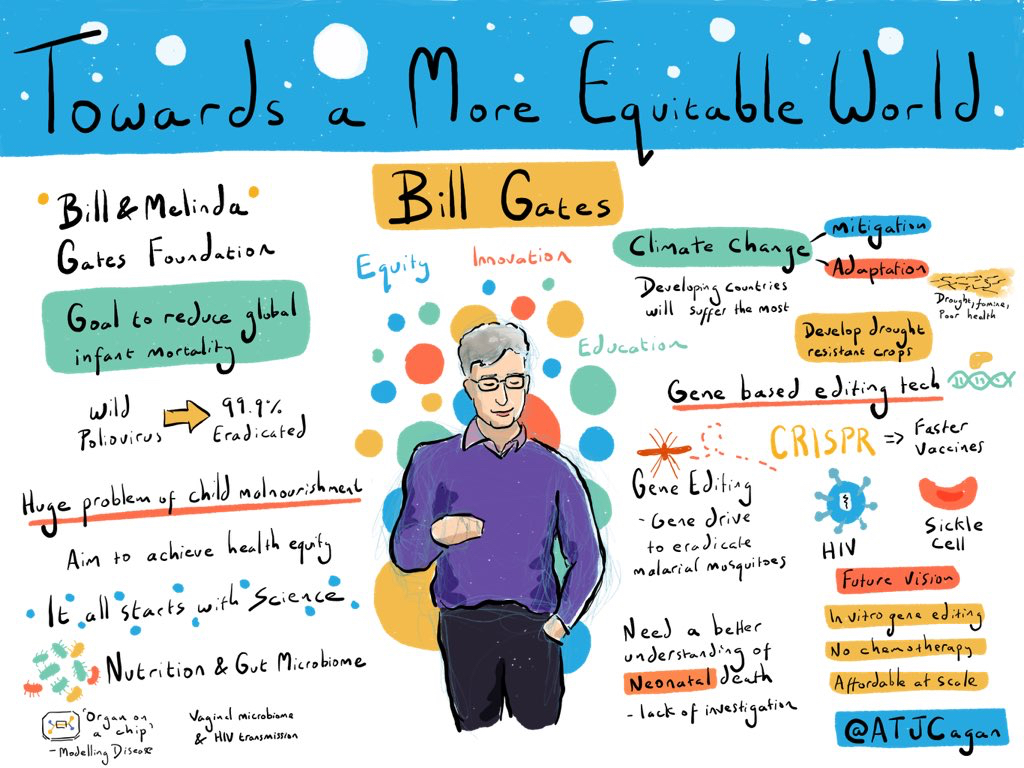 Towards a More Equitable World
Bill & Melinda
Gates Foundation
Goal to reduce global
infant mortality
Wild
Poliovirus
99.9%
Eradicated
Huge problem of child malnourishment
Aim to achieve health equity
It all starts with Science
Nutrition & Gut Microbiome
'Organ on
a chip'
- Modelling Disease
Vaginal microbiome
& HIV transmission
Bill Gates
Equity
Innovation
Education
Climate Change
Mitigation
Adaptation
Developing countries
will suffer the most
Drought, famine,
Poor health
Develop drought
resistant crops
Gene based editing tech
CRISPR =>
Faster
Vaccines
Gene Editing
- Gene drive
to eradicate
malarial mosquitoes
HIV
Sickle
Cell
Need a better
understanding of
Neonatal death
- lack of investigation
Future Vision
In vitro gene editing
No chemotherapy
Affordable at scale
@ATJCagan